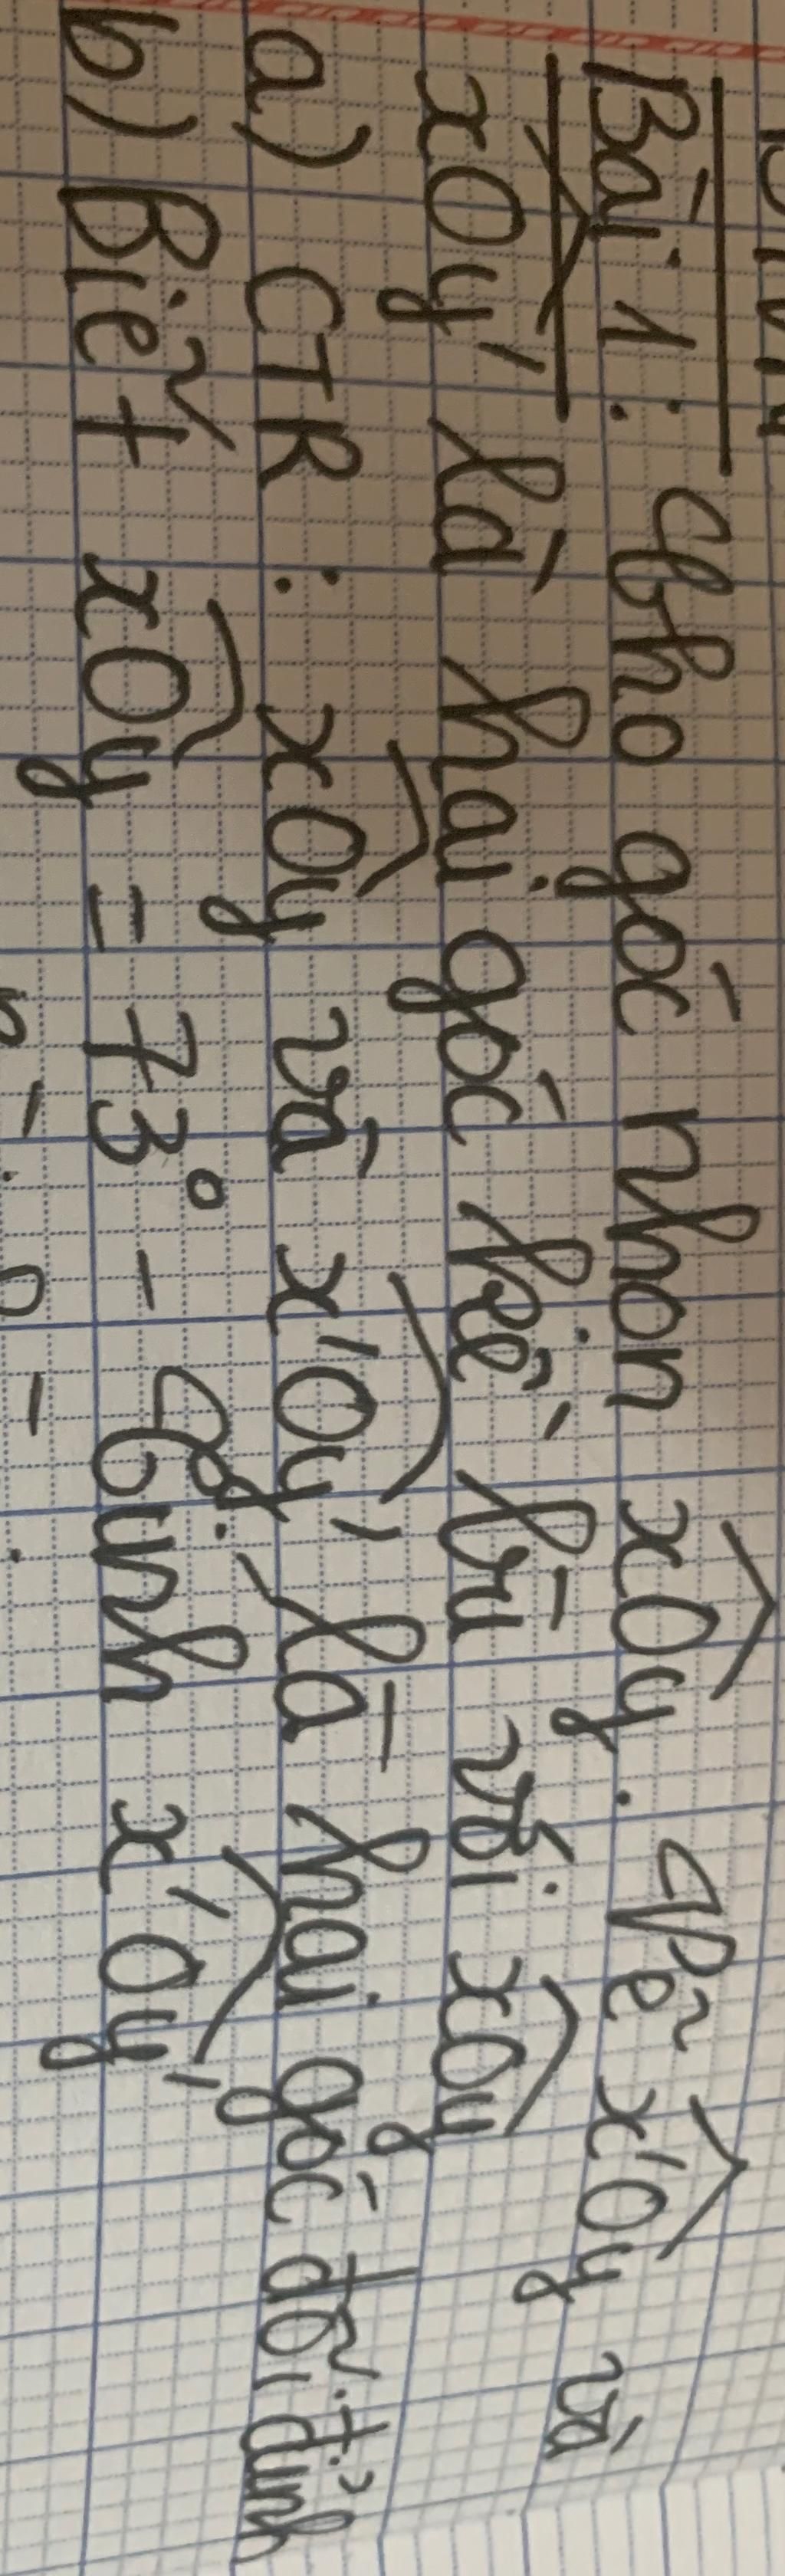 Bài 1: Cho góc nhọn xOy. Vẽ x'Oy và
xOy' là hai góc kề bù với xOy
a) CTR: xOy và x'Oy' là hai góc đối đỉnh
b) Biết xOy = 73° - Tính x'Oy'